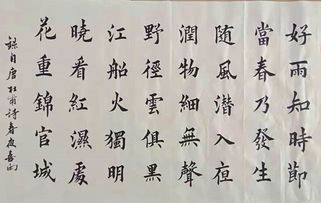 好雨知時節
當春乃發生
随風潜入夜
潤物細無聲
野徑雲俱黑
江船火獨明
曉看紅濕處
花重錦官城
錄自唐杜甫詩春夜喜雨